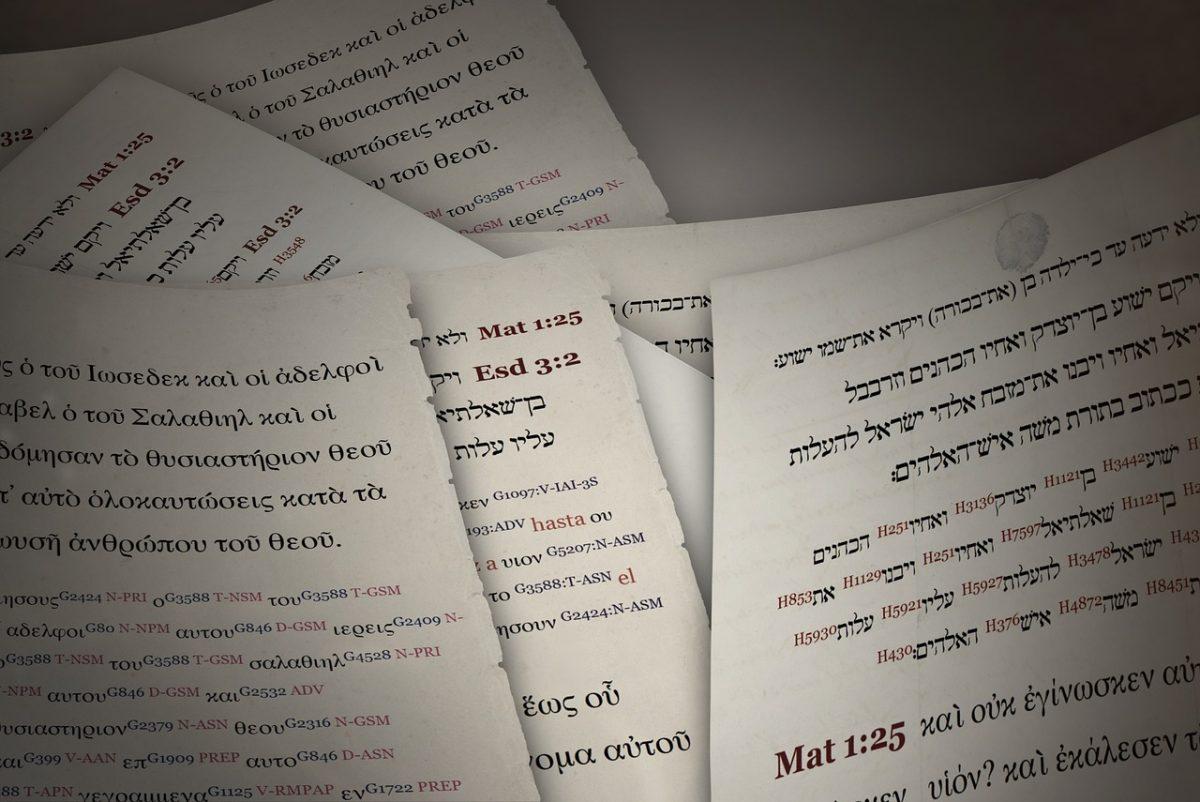 ὁ τοῦ Ιωσεδεκ καὶ οἱ ἀδελφ
ὁ τοῦ Σαλαθιηλ καὶ οἱ
τὸ θυσιαστήριον θεοῦ
καυτώσεις κατὰ τὰ
τοῦ θεοῦ.
τουG3588 T-GSM
D-GSM ιερειςG2409 N-
N-PRI
3:2
Mat 1:25 ולא ידעה עד
Esd 3:2 ויקם ישו
בן־שאלתיאל
עליו עלות כ
Esd 3:2 ויקם
H3548
מזבח
את־בכורה)
ואחיו
ὁ τοῦ Ιωσεδεκ καὶ οἱ ἀδελφοὶ
αβελ ὁ τοῦ Σαλαθιηλ καὶ οἱ
δόμησαν τὸ θυσιαστήριον θεοῦ
τ’ αὐτὸ ὁλοκαυτώσεις κατὰ τὰ
ωυσῆ ἀνθρώπου τοῦ θεοῦ.
ησουςG2424 N-PRI οG3588 T-NSM τουG3588 T-GSM
αδελφοιG80 N-NPM αυτουG846 D-GSM ιερειςG2409 N-
οG3588 T-NSM τουG3588 T-GSM σαλαθιηλG4528 N-PRI
-NPM αυτουG846 D-GSM καιG2532 ADV
υσιαστηριονG2379 N-ASN θεουG2316 N-GSM
αιG399 V-AAN επG1909 PREP αυτοG846 D-ASN
88 T-APN γεγραμμεναG1125 V-RMPAP ενG1722 PREP
Mat 1:25 ולא
Esd 3:2 ויק
בן־שאלתיא
עליו עלות
κεν G1097:V-IAI-3S
193:ADV hasta ου
a υιον G5207:N-ASM
το G3588:T-ASN el
ησουν G2424:N-ASM
ἕως οὗ
νομα αὐτοῦ
ולא ידעה עד כי־ילדה בן (את־בכורה) ויקרא את־שמו ישוע:
ויקם ישוע בן־יוצדק ואחיו הכהנים וזרבבל
יאל ואחיו ויבנו את־מזבח אלהי ישראל להעלות
ככתוב בתורת משה איש־האלהים:
ישועH3442 בןH1121 יוצדקH3136 ואחיוH251 הכהנים
בןH1121 שאלתיאלH7597 ואחיוH251 ויבנוH1129 אתH853
ישראלH3478 להעלותH5927 עליוH5921 עלותH5930
H8451 משהH4872 אישH376 האלהים:H430
Mat 1:25 καὶ οὐκ ἐγίνωσκεν αὐτ
υἱόν? καὶ ἐκάλεσεν τ